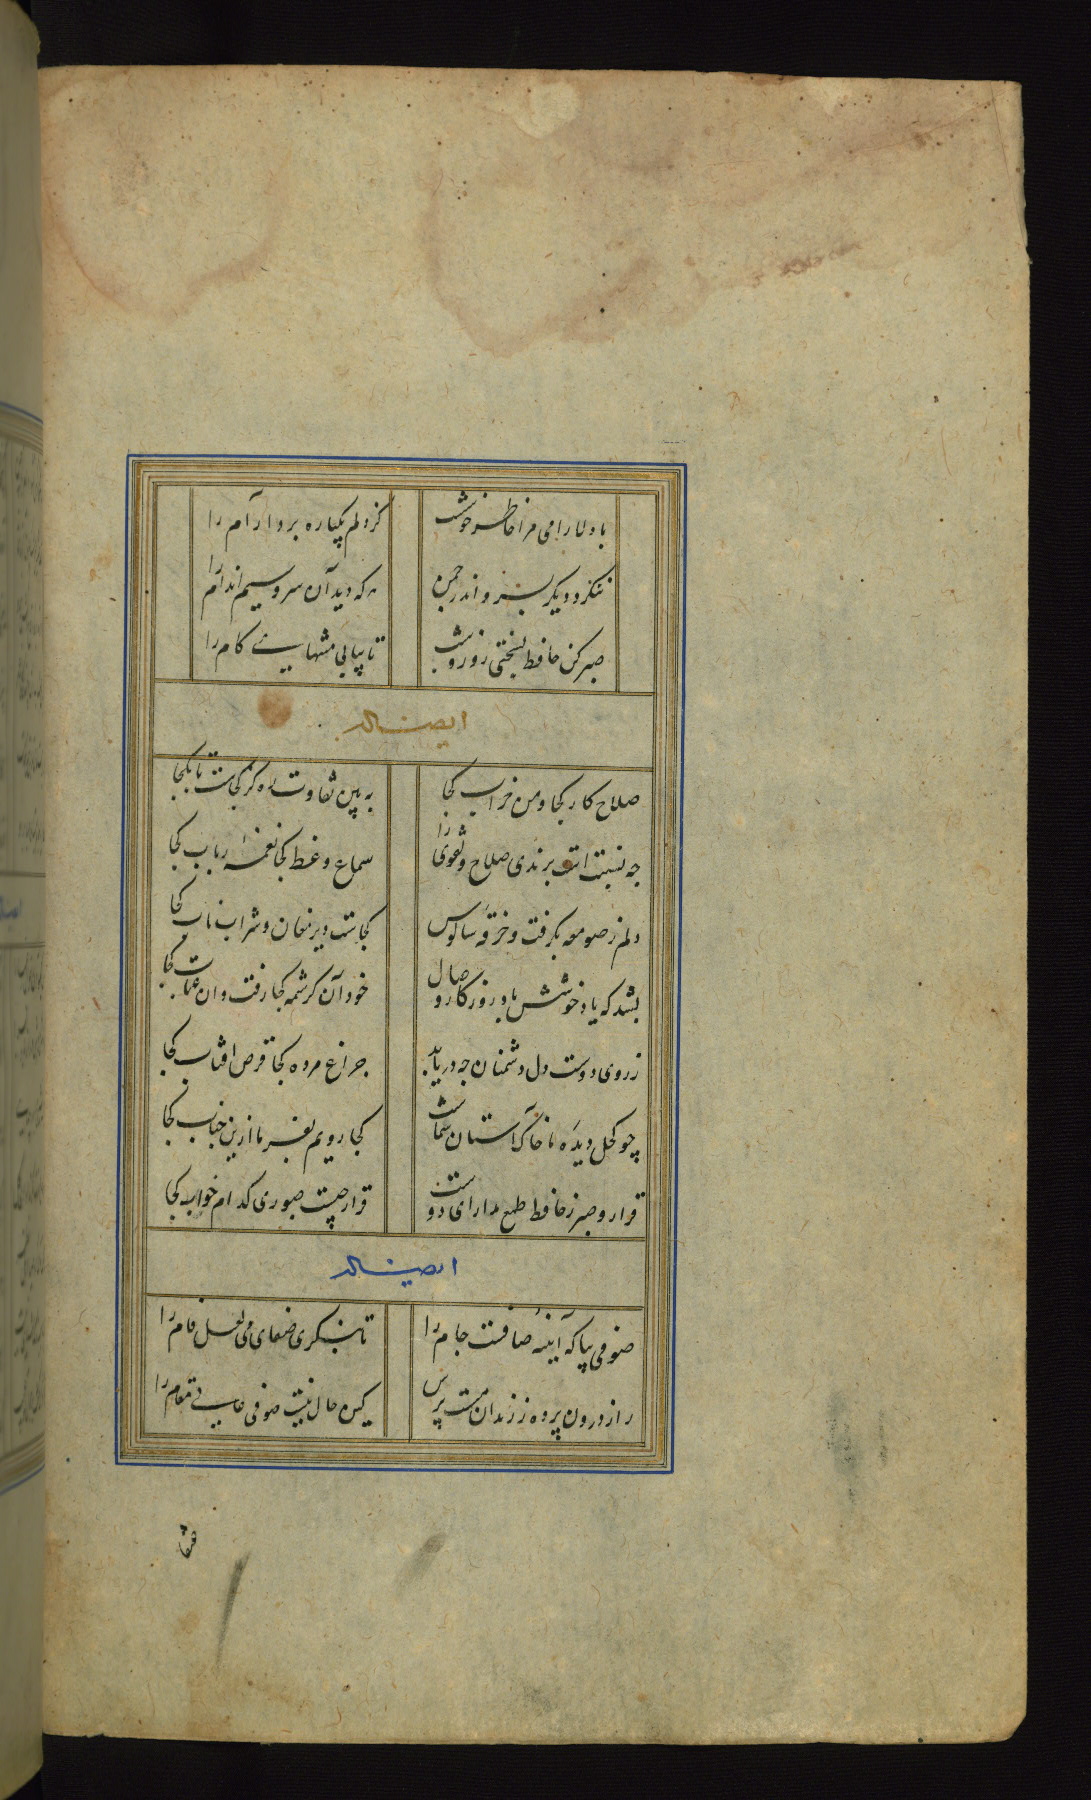 با دلارامی مرا خاطر خوشست کز دلم یکباره برد آرام را
ننگرد دیگر بسرو اندر چمن هر که دید آن سرو سیم اندام را
صبر کن حافظ بسختی روز و شب تا بیابی منتهای کام را
ایضاً له
صلاح کار کجا و من خراب کجا به بین تفاوت ره کز کجاست تا بکجا
چه نسبت است برندی صلاح و تقوی را سماع وعظ کجا نغمه رباب کجا
دلم ز صومعه بگرفت و خرقه سالوس کجاست دیر مغان و شراب ناب کجا
بشد که یاد خوشش باد روزگار وصال خود آن کرشمه کجا رفت و ان عتاب کجا
ز روی دوست دل دشمنان چه دریابد چراغ مرده کجا قرص افتاب کجا
چو کحل دیده ما خاک آستان شماست کجا رویم بفرما ازین جناب کجا
قرار و صبر ز حافظ طمع مدار ای دوست قرار چیست صبوری کدام خواب کجا
ایضاً له
صوفی بیا که آینه صافست جام را تا بنگری صفای می لعل فام را
راز درون پرده ز رندان مست پرس کین حال نیست صوفی عالی مقام را
عنقا